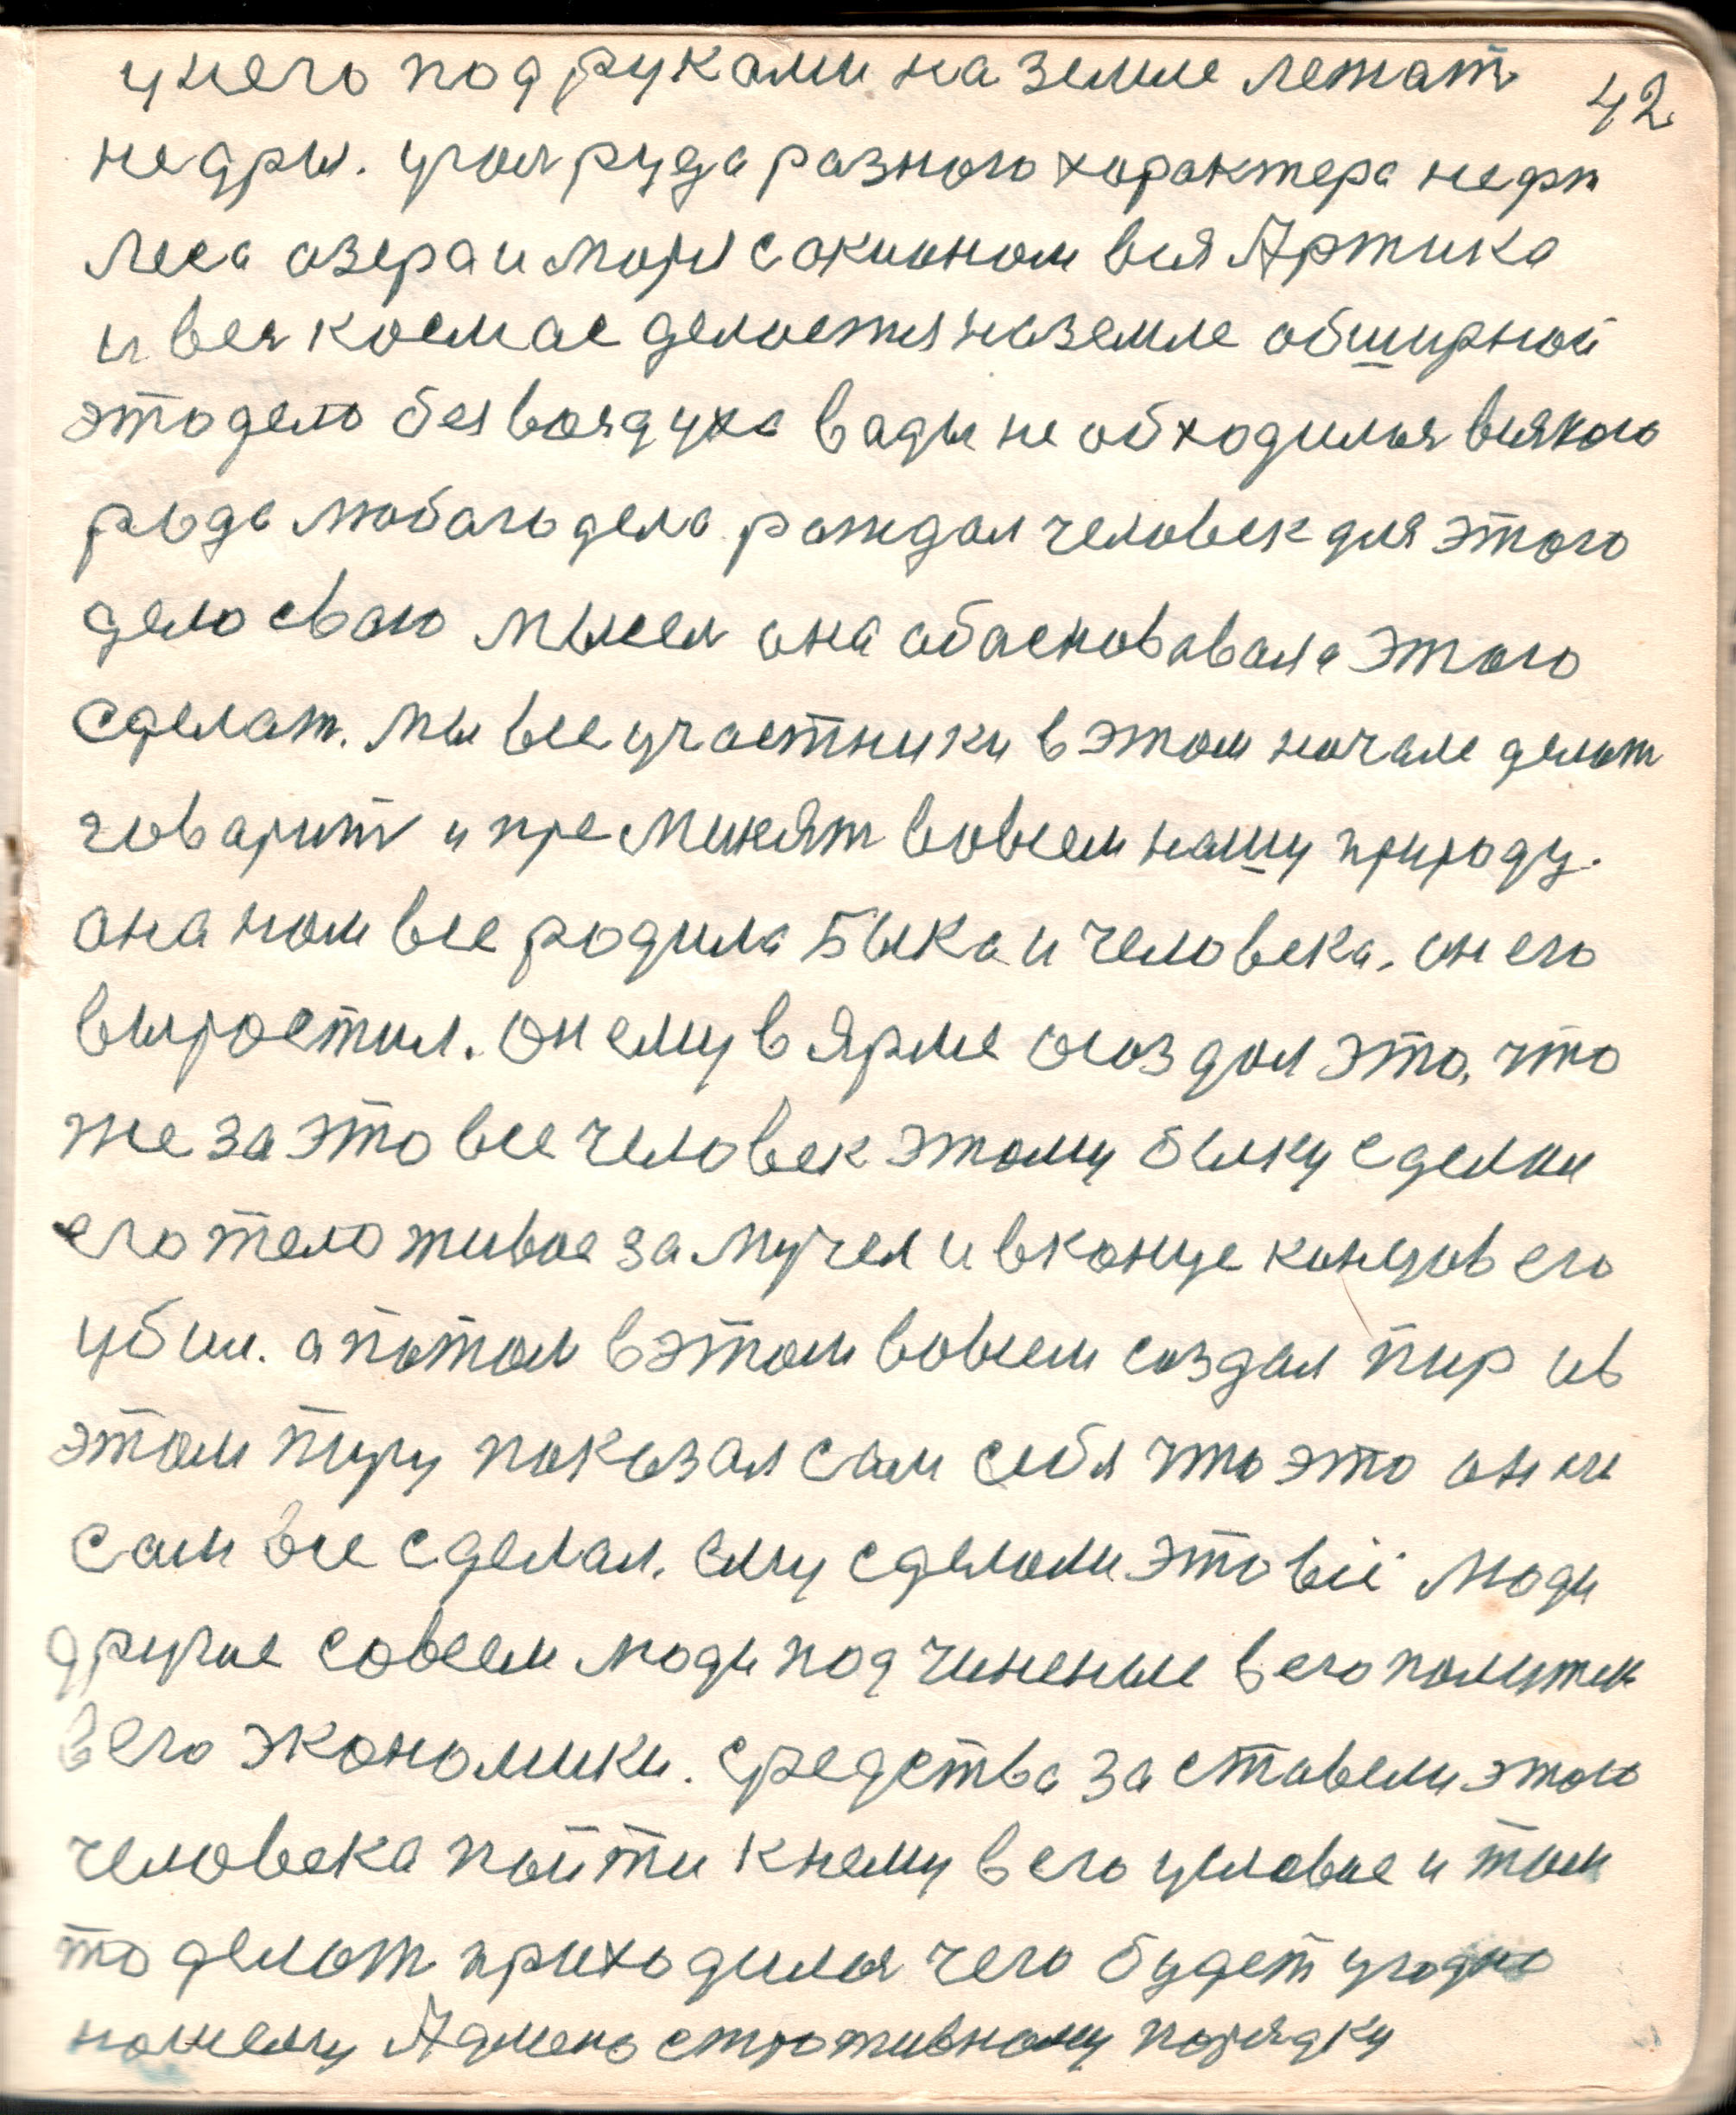 у него под руками на земле лежат 42
недры. угол руда разного характера нефт
леса озера и моря с окионом вся Артика
и вся космас делоется на земле обширной
это дело без воздуха вады не обходилося всякого
рода любого дела. раждал человек для этого
дело сваю мысел она обасновавала этого
сделат. мы все участники в этом начале делат
говарит и прементят вовсем нашу природу.
она нам все родила Быка и человека. он его
выростил. он ему в ярме воз дал это, что
же за это все человек этому быку сделал
его тело живое замучел и вконце концов его
убил. а потом в этом вовсем создал пир и в
этом пиру показал сам себя что это он ли
сам все сделал. ему сделали это всё люди
другие совсем люди подчиненые в его политик
в его экономики. средства заставели этого
человека пойти к нему в его условие и там
то делат приходился чего будет угодно
нашему Адменостротивному порядку